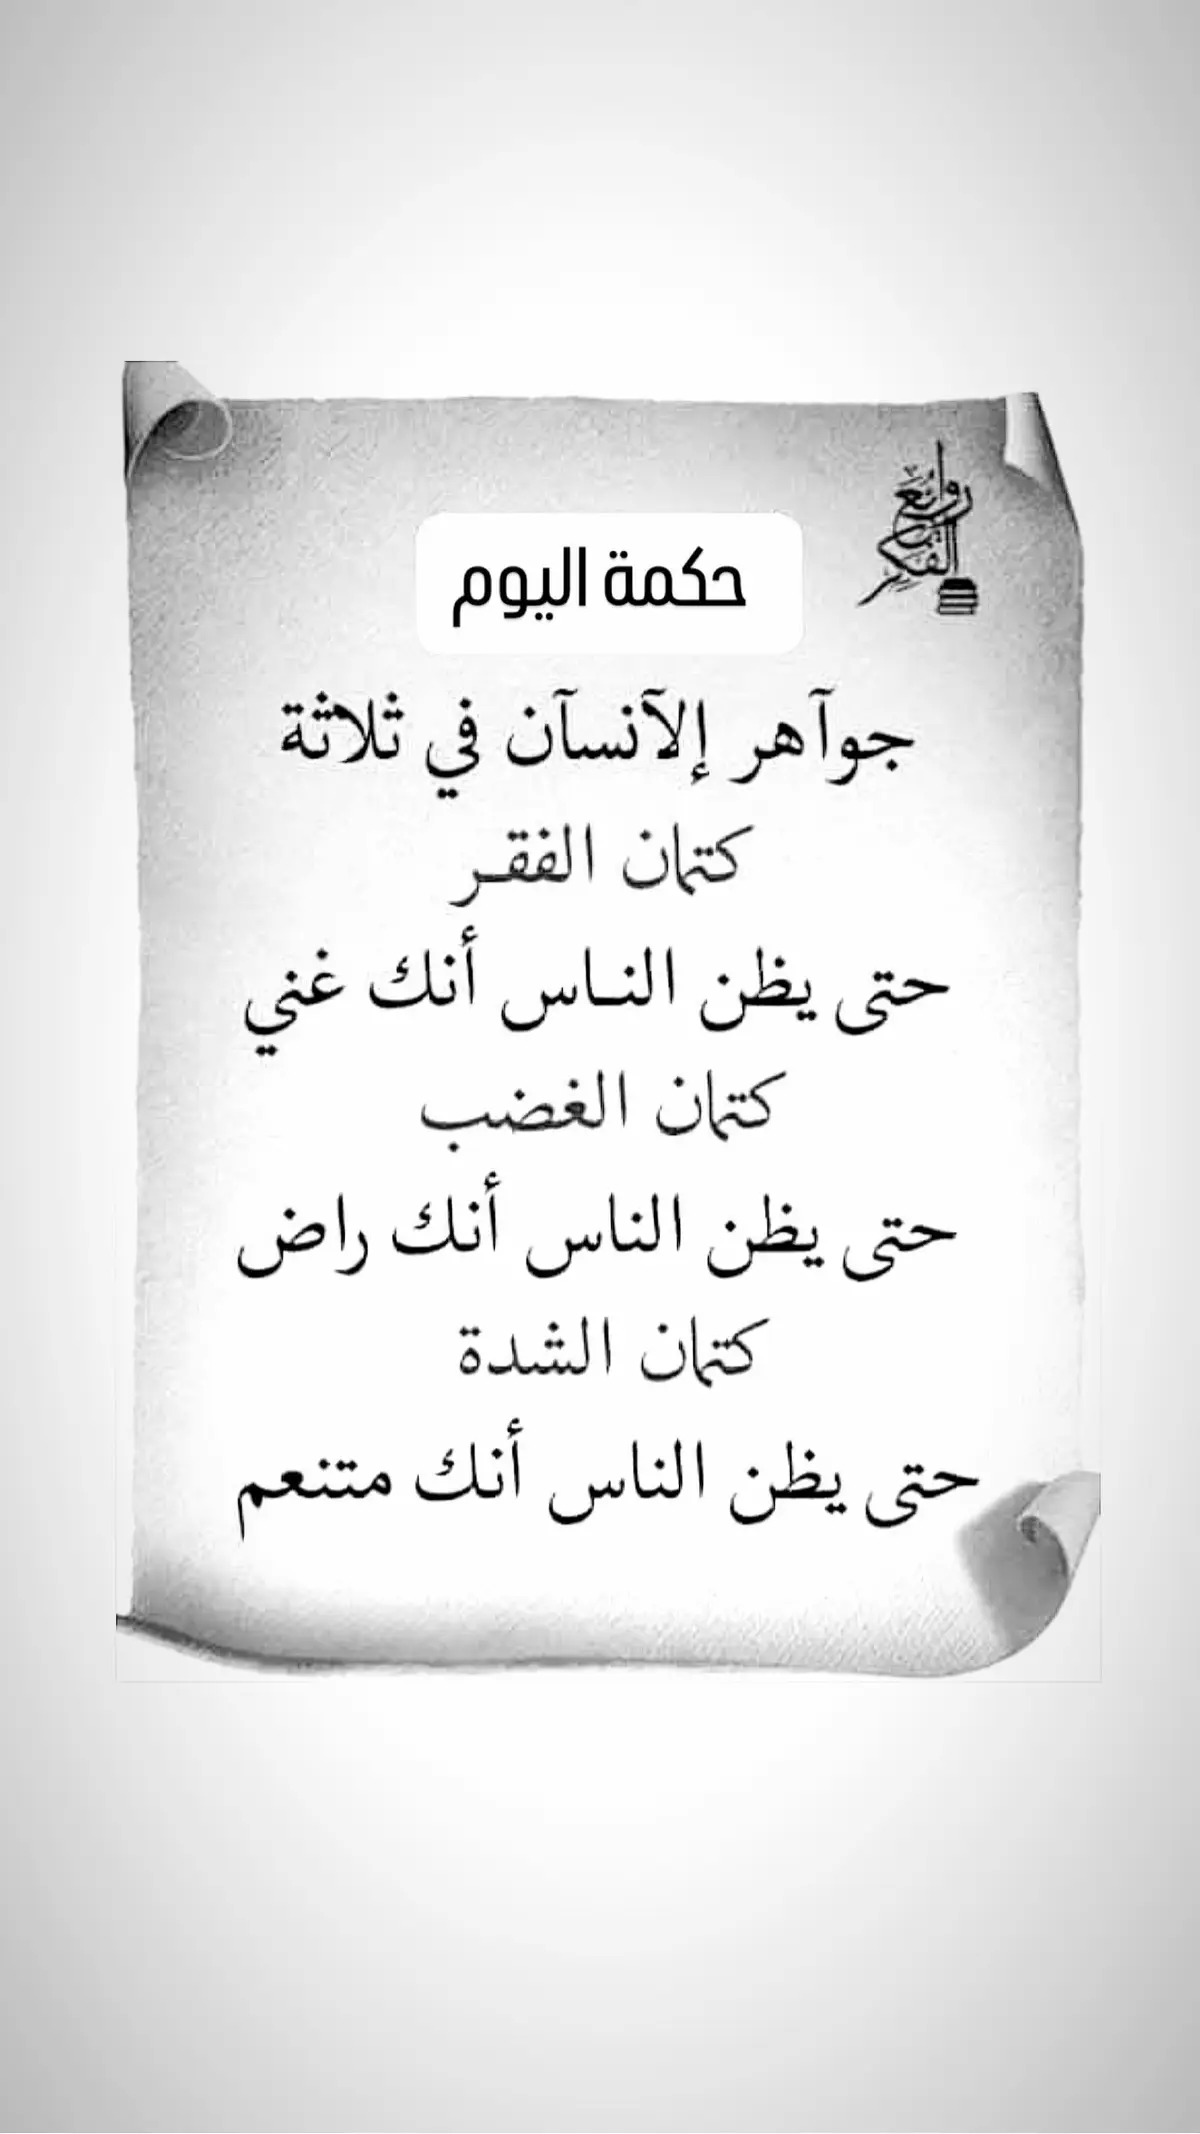 روائع
الفكر
حكمة اليوم
جوآهر إلآنسآن في ثلاثة
كتمان الفقـر
حتى يظن النـاس أنك غني
كتمان الغضب
حتى يظن الناس أنك راض
كتمان الشدة
حتى يظن الناس أنك متنعم